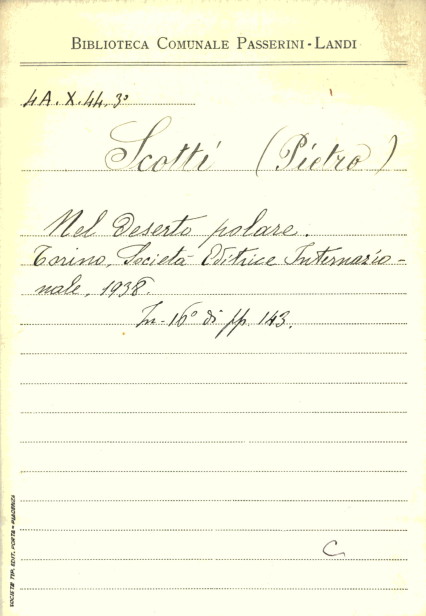 BIBLIOTECA COMUNALE PASSERINI-LANDI
4A.X.44.3°
Scotti (Pietro)
Nel deserto polare.
Torino, Società Editrice Internazio-
nale, 1938.
In-16° di pp. 143.
C
SOCIETÀ TIP. EDIT. PORTA - PIACENZA